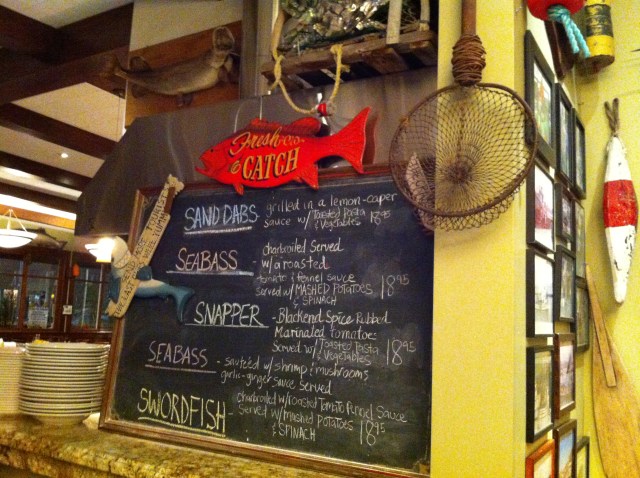 Fresh
CATCH
SAND DABS grilled in a lemon-caper
sauce w/ Toasted Pasta & Vegetables 18.95
SEABASS - charbroiled Served
w/ a roasted
tomato fennel sauce
served w/ MASHED POTATOES & SPINACH 18.95
SNAPPER - Blackend Spice Rubbed
Marinated tomatoes
Served w/ Toasted Pasta & Vegetables 18.95
SEABASS - sauteed w/ shrimp & mushrooms
garlic-ginger sauce Served
SWORDFISH - charbroiled w/ roasted Tomato Fennel Sauce
Served w/ mashed POTATOES & SPINACH 18.95